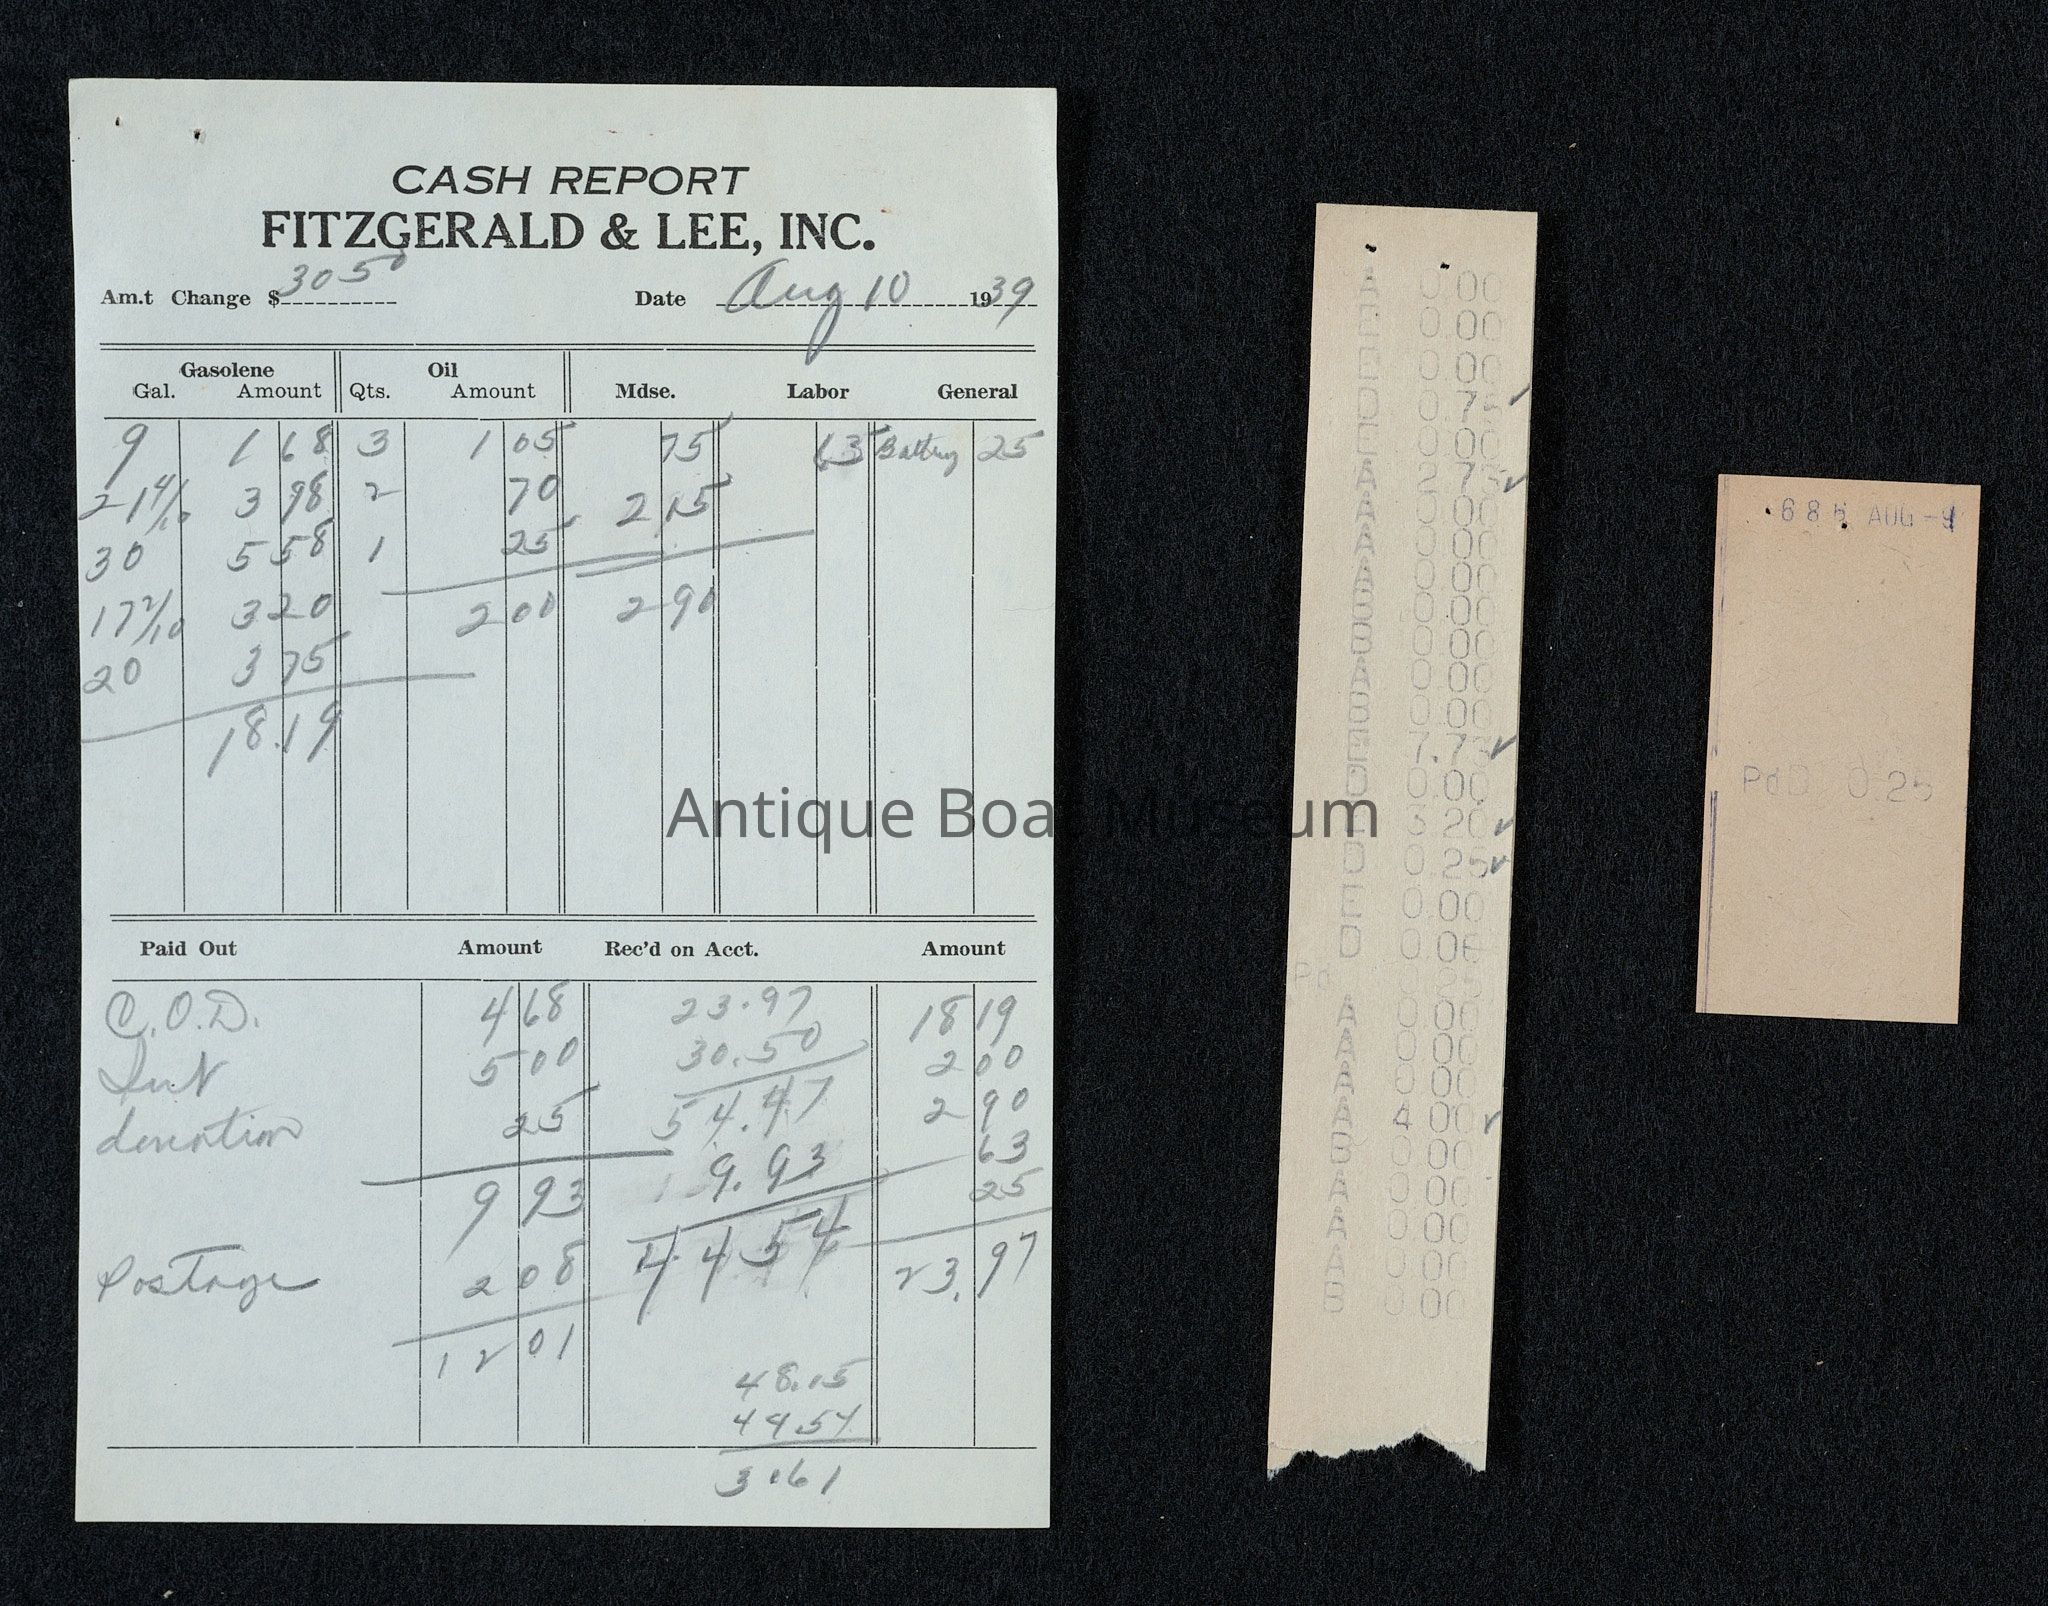 CASH REPORT
FITZGERALD & LEE, INC.
Am.t Change $ 30 50 Date Aug 10 1939
Gasolene Oil
Gal. Amount Qts. Amount Mdse. Labor General
9 1 68 3 1 05 75 63 Battery 25
21 4/10 3 98 2 70 2 15
30 5 58 1 25
17 2/10 3 20 2 00 2 90
20 3 75
18.19
Paid Out Amount Rec'd on Acct. Amount
C.O.D. 4 68 23.97 18 19
5 00 30.50 2 00
donation 25 54.47 2 90
9.93 63
9 93 25
44 54
Postage 2 08 23.97
12 01
48.15
44.54
3.61
Antique Boat Museum
A 0.00
E 0.00
0.00
D 0.75
0.00
A 2.75
A 0.00
A 0.00
A 0.00
B 0.00
B 0.00
A 0.00
B 0.00
E 7.75
D 0.00
3.20
D 0.25
E 0.00
D 0.06
Pd
A 0.00
A 0.00
A 0.00
A 4.00
B 0.00
A 0.00
A 0.00
A 0.00
B 0.00
AUG -9
PdD 0.25